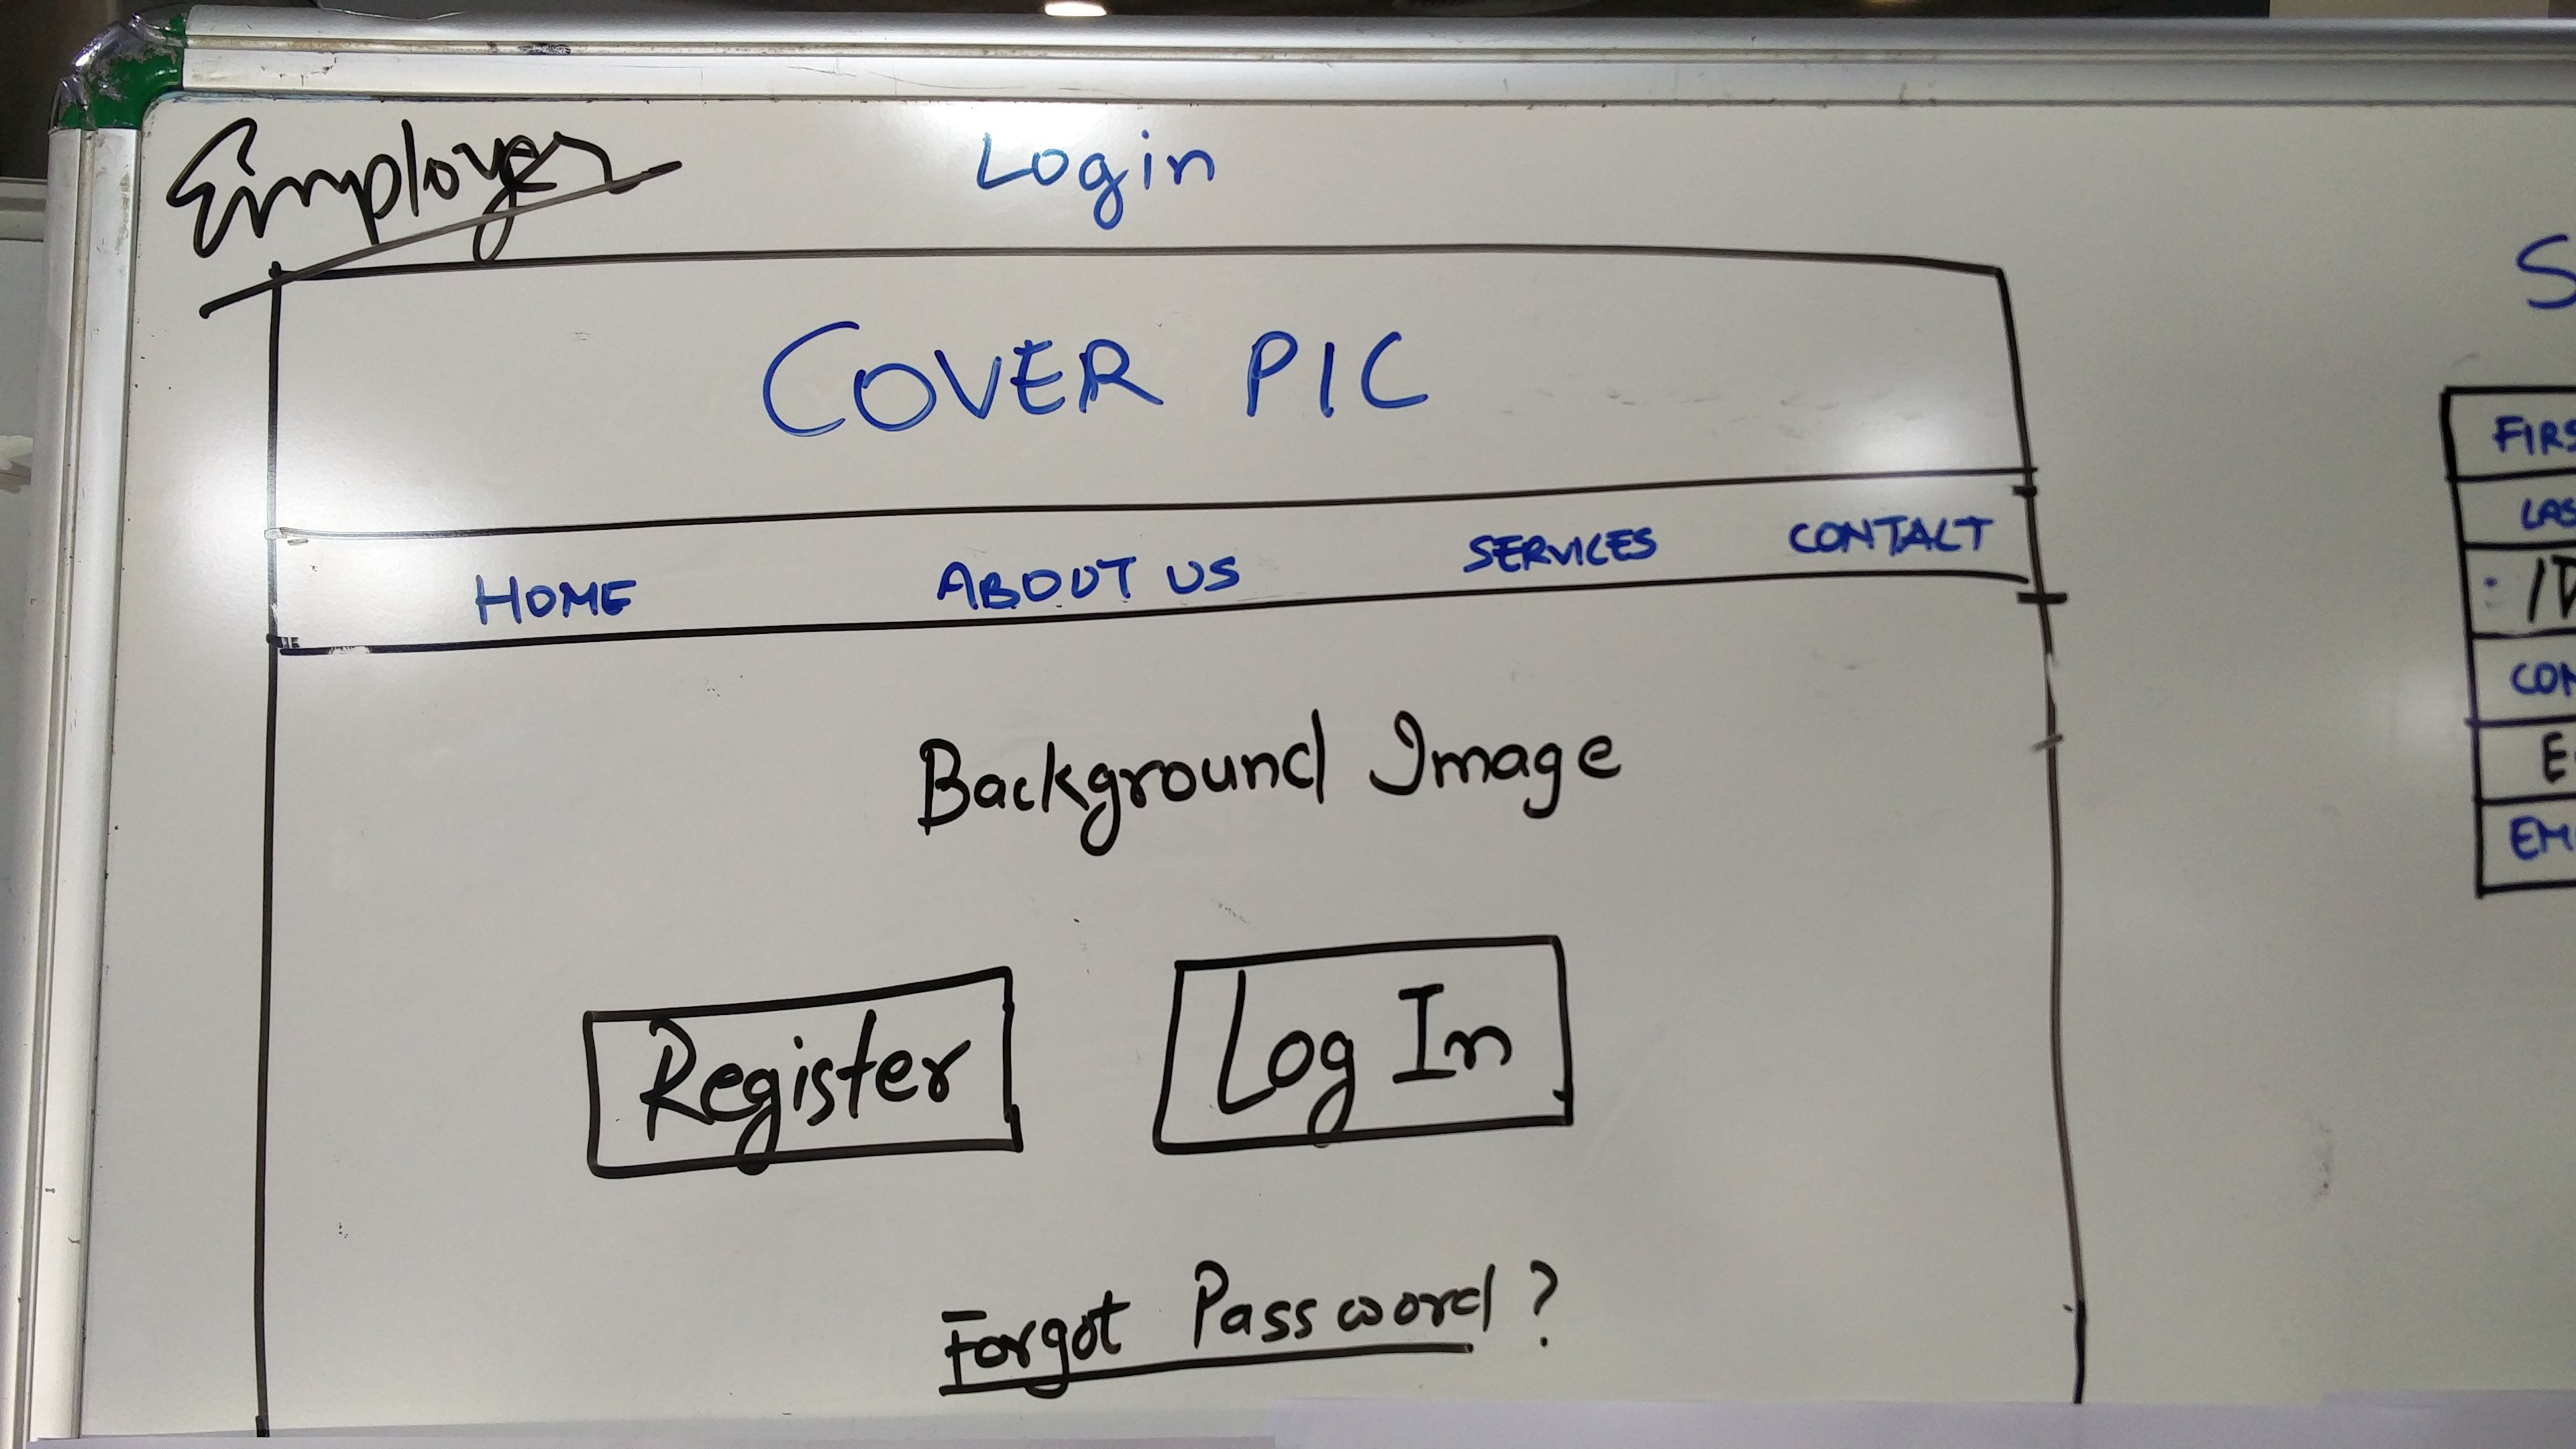 Employer
Login
COVER PIC
HOME ABOUT US SERVICES CONTALT
Background Image
Register Log In
Forgot Password?
S
FIRS
LAS
ID
CON
EM